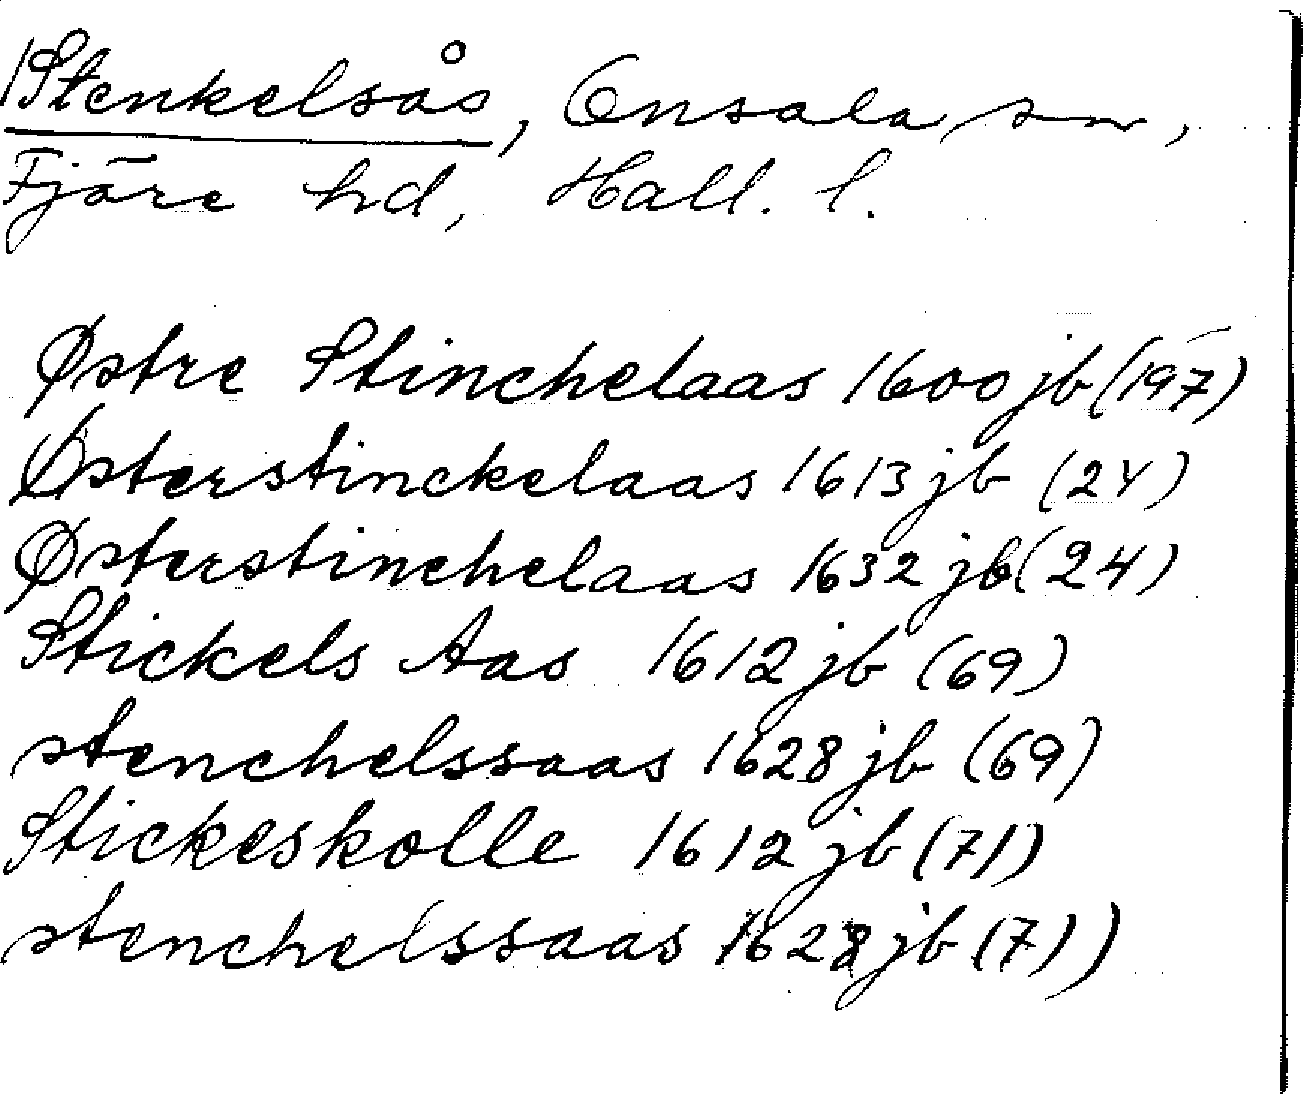 Stenkelsås, Onsala sn,
Fjäre hd, Hall. l.
Østre Stinchelaas 1600 jb (197)
Østerstinckelaas 1613 jb (24)
Østerstinchelaas 1632 jb (24)
Stickels Aas 1612 jb (69)
stenchelssaas 1628 jb (69)
Stickeskolle 1612 jb (71)
stenchelssaas 1628 jb (71)